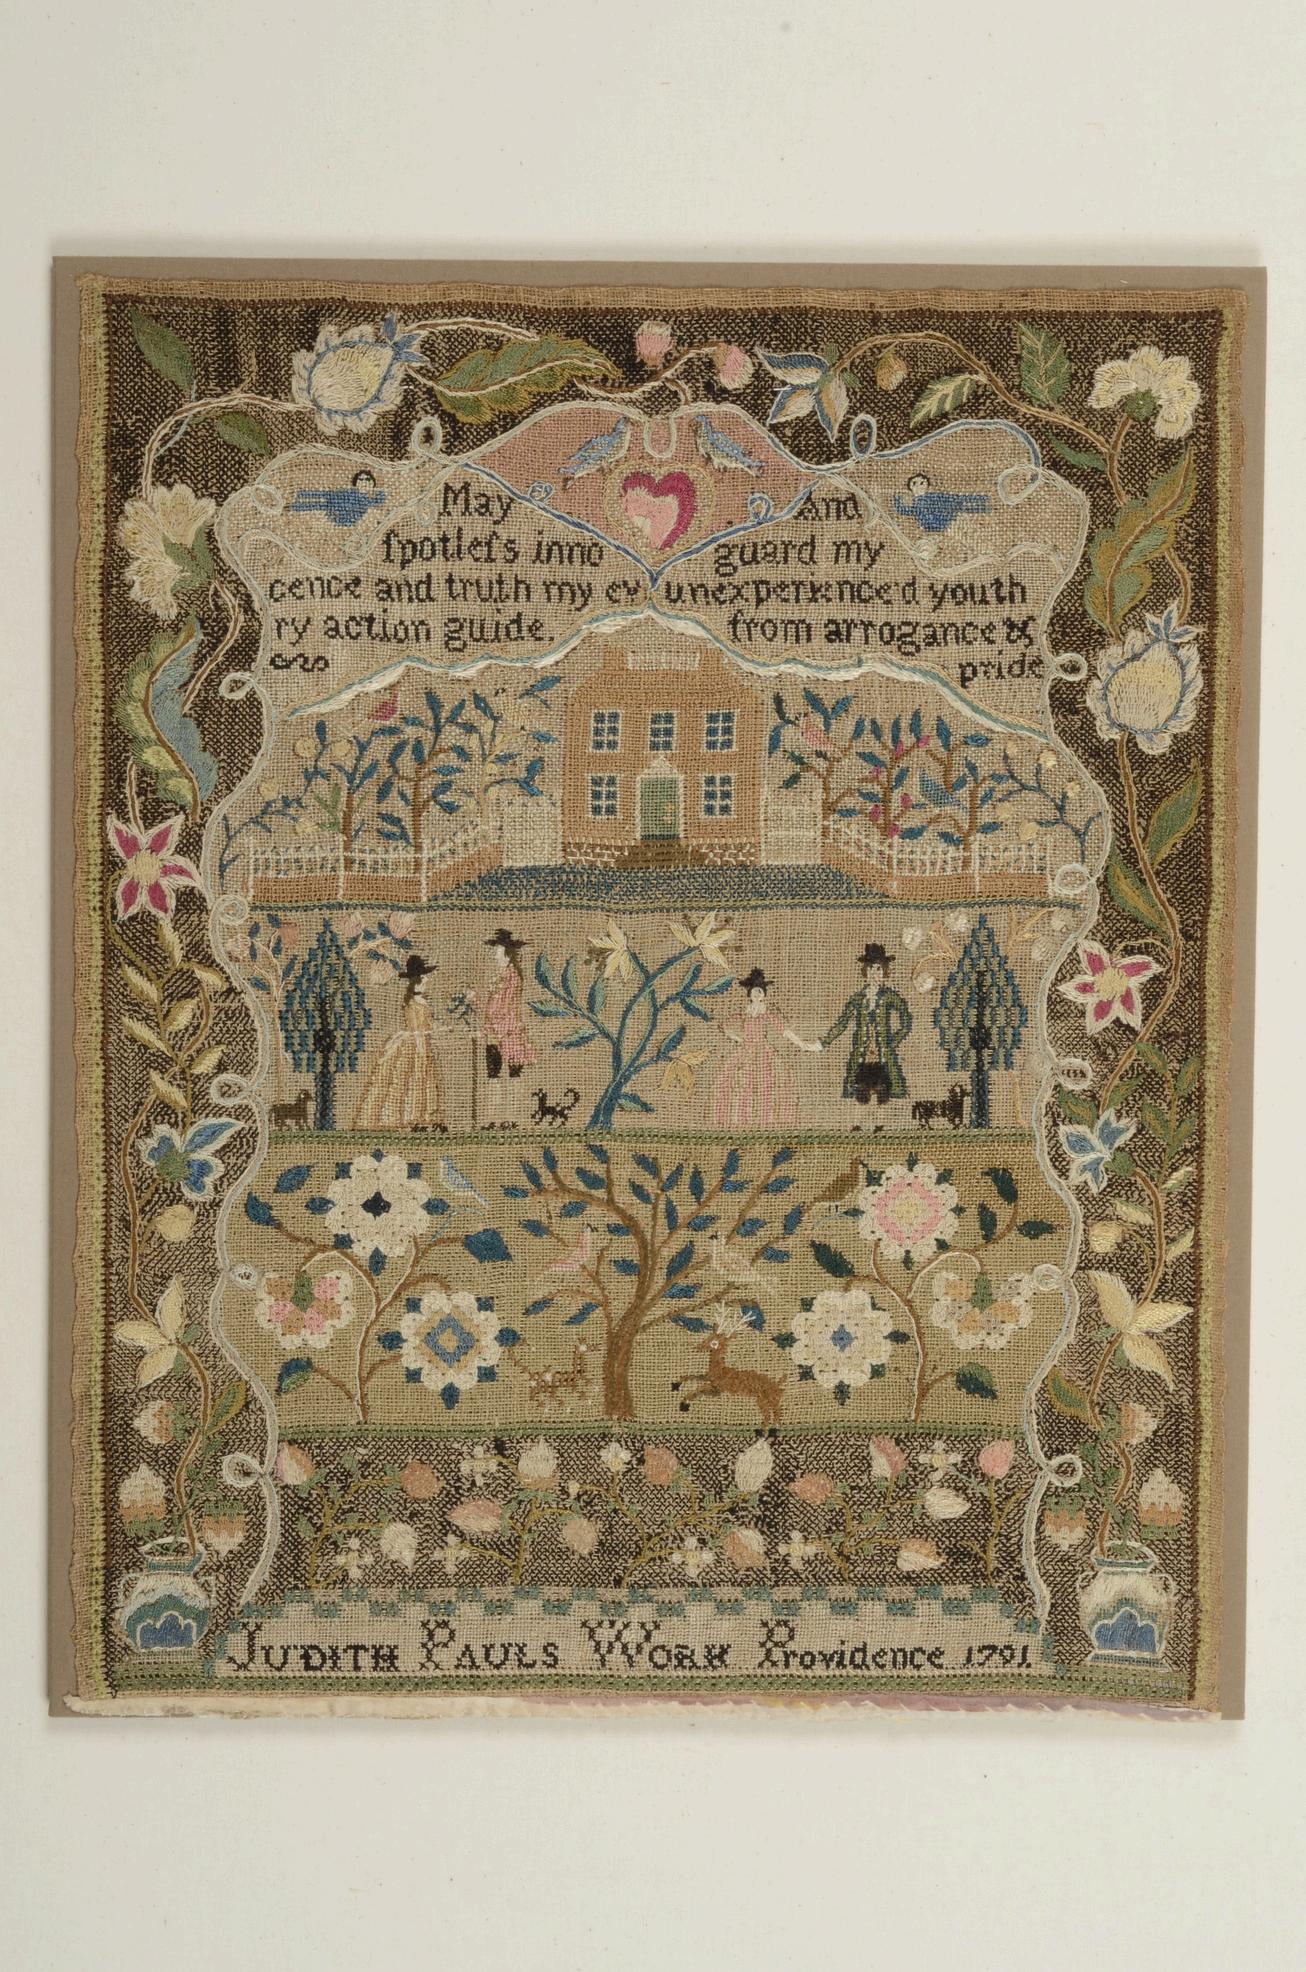 May
ſpotleſs inno
cence and truth my ev
ry action guide.
And
guard my
unexperience'd youth
from arrogance &
pride
Judith Pauls Work Providence 1791.